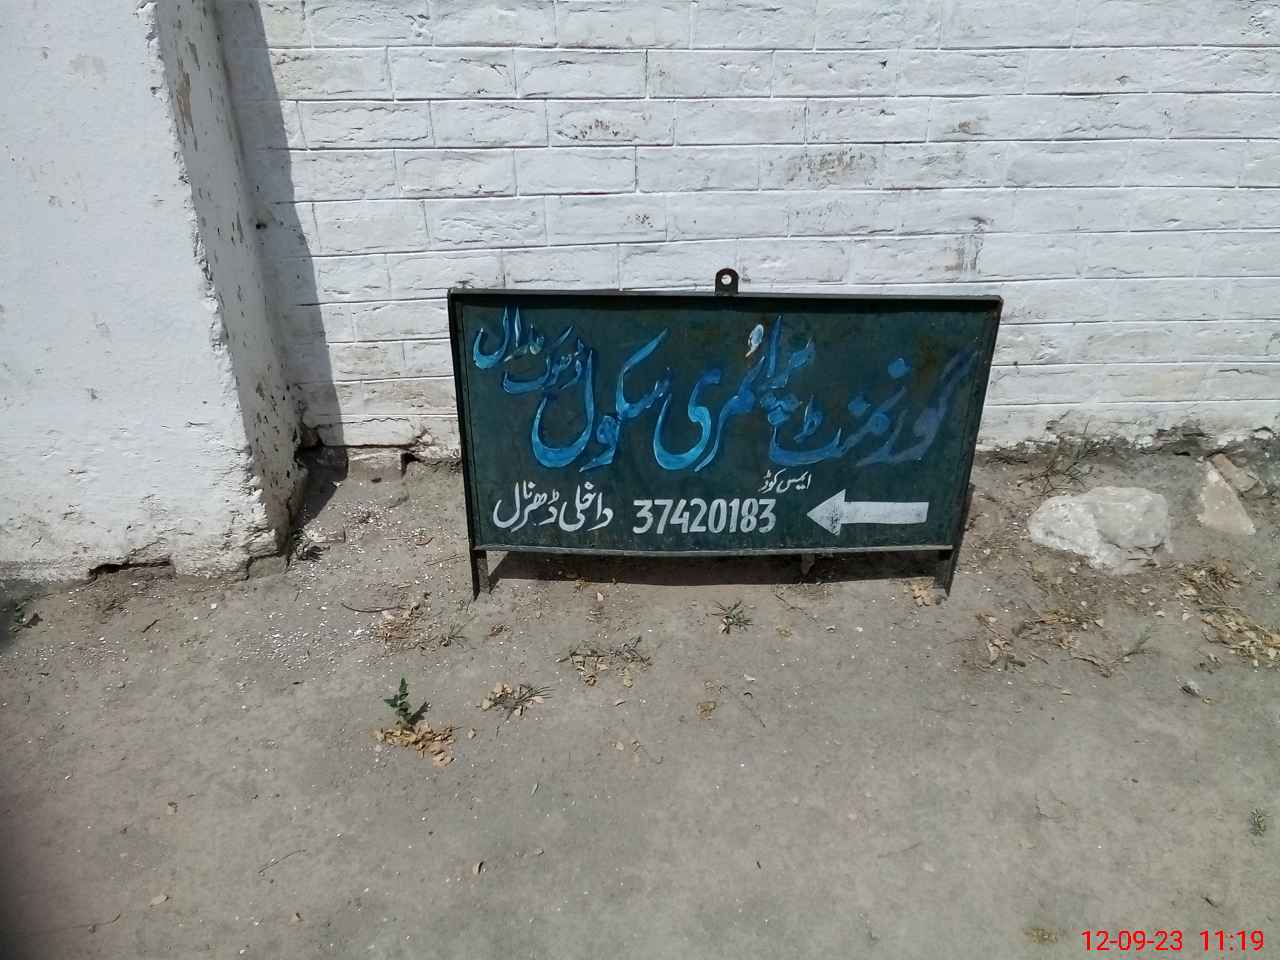 گورنمنٹ پرائمری سکول ڈھوک
ایمس کوڈ
37420183 داخلی ڈھرنال
12-09-23 11:19